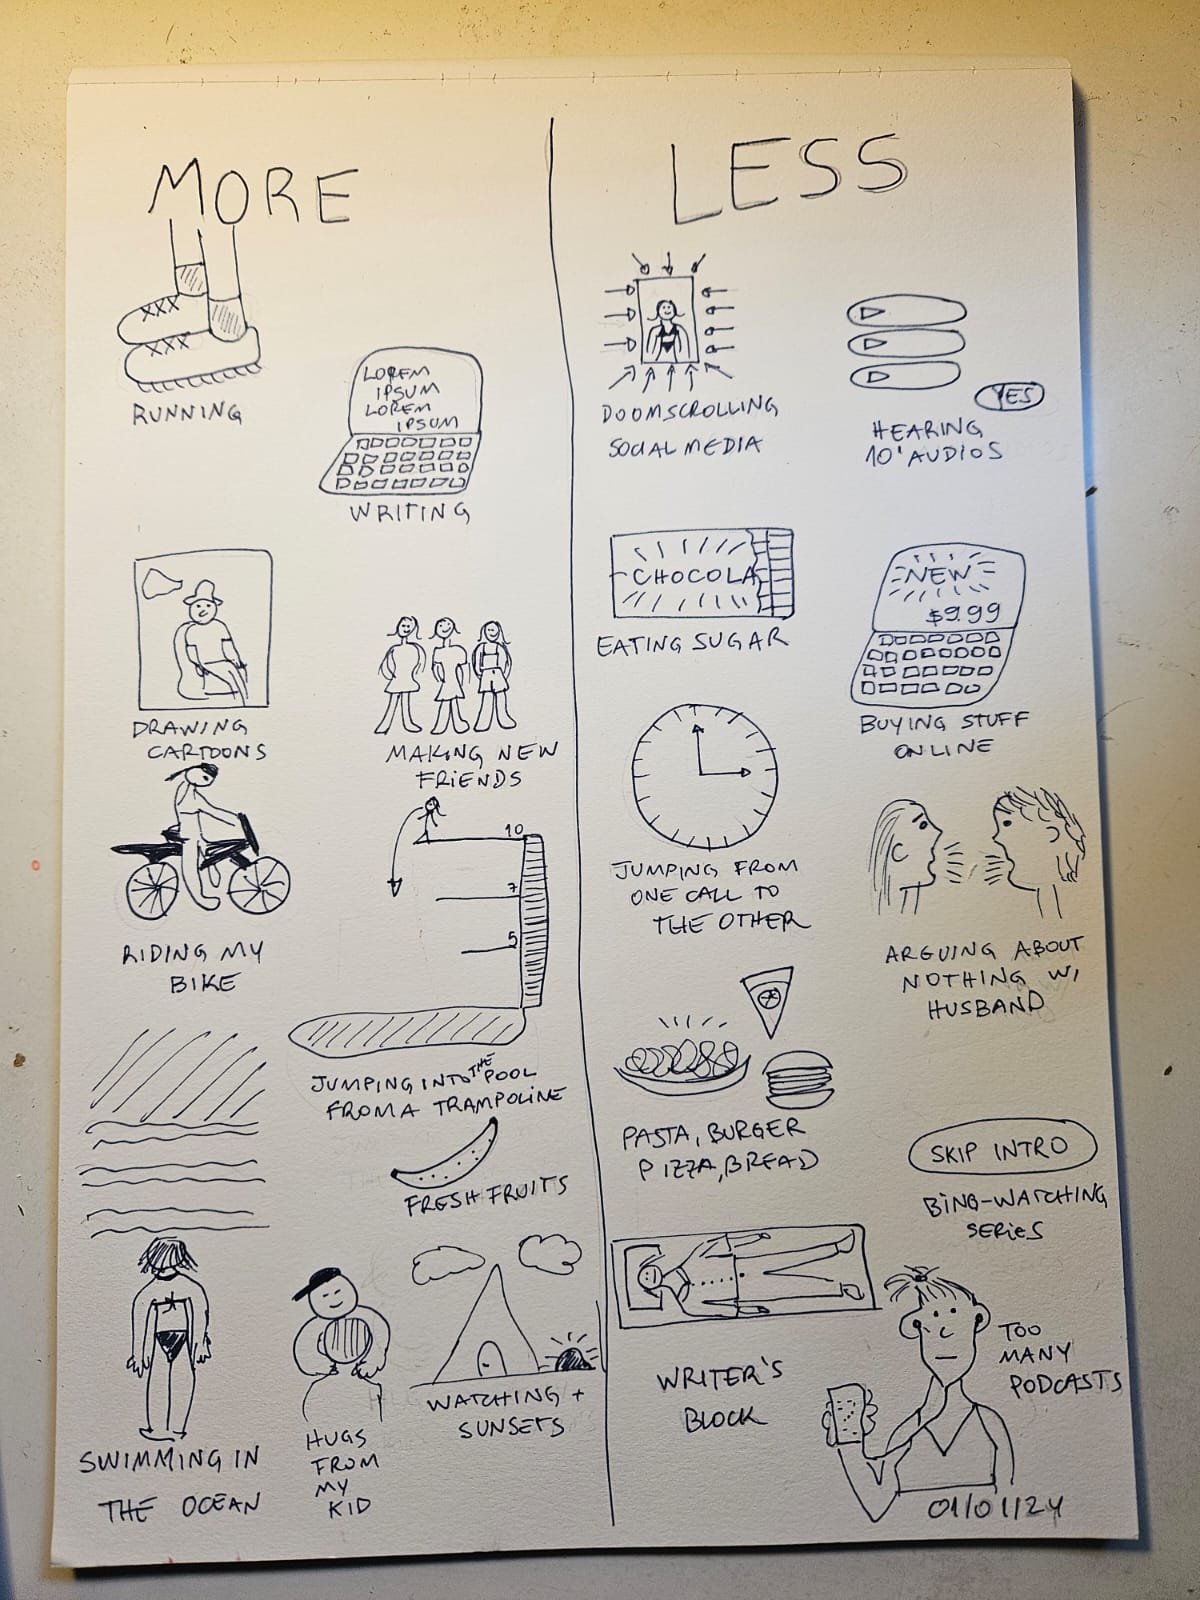 MORE
RUNNING
LOREM
IPSUM
LOREM
IPSUM
WRITING
DRAWING
CARTOONS
MAKING NEW
FRIENDS
RIDING MY
BIKE
10
7
5
JUMPING INTO THE POOL
FROM A TRAMPOLINE
FRESH FRUITS
SWIMMING IN
THE OCEAN
HUGS
FROM
MY
KID
WATCHING +
SUNSETS
LESS
DOOMSCROLLING
SOCIAL MEDIA
YES
HEARING
10' AUDIOS
CHOCOLA
EATING SUGAR
NEW
$9.99
BUYING STUFF
ONLINE
JUMPING FROM
ONE CALL TO
THE OTHER
ARGUING ABOUT
NOTHING W/
HUSBAND
PASTA, BURGER
PIZZA, BREAD
SKIP INTRO
BING-WATCHING
SERIES
WRITER'S
BLOCK
TOO
MANY
PODCASTS
01/01/24